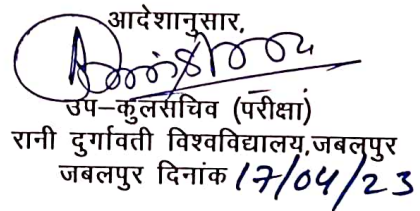 आदेशानुसार,
उप–कुलसचिव (परीक्षा)
रानी दुर्गावती विश्वविद्यालय,जबलपुर
जबलपुर दिनांक 17/04/23